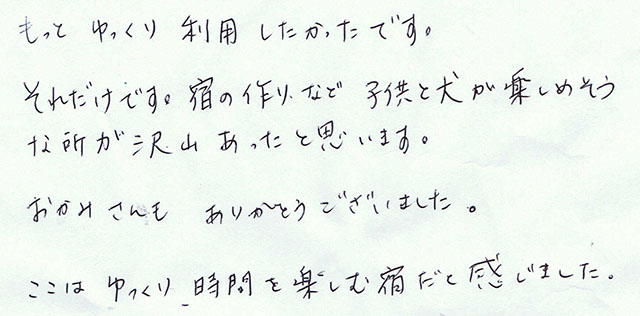 もっと ゆっくり 利用 したかったです。
それだけです。宿の作りなど 子供と犬が楽しめそう
な所が沢山あったと思います。
おかみさんも ありがとうございました。
ここは ゆっくり 時間を楽しむ宿だと感じました。